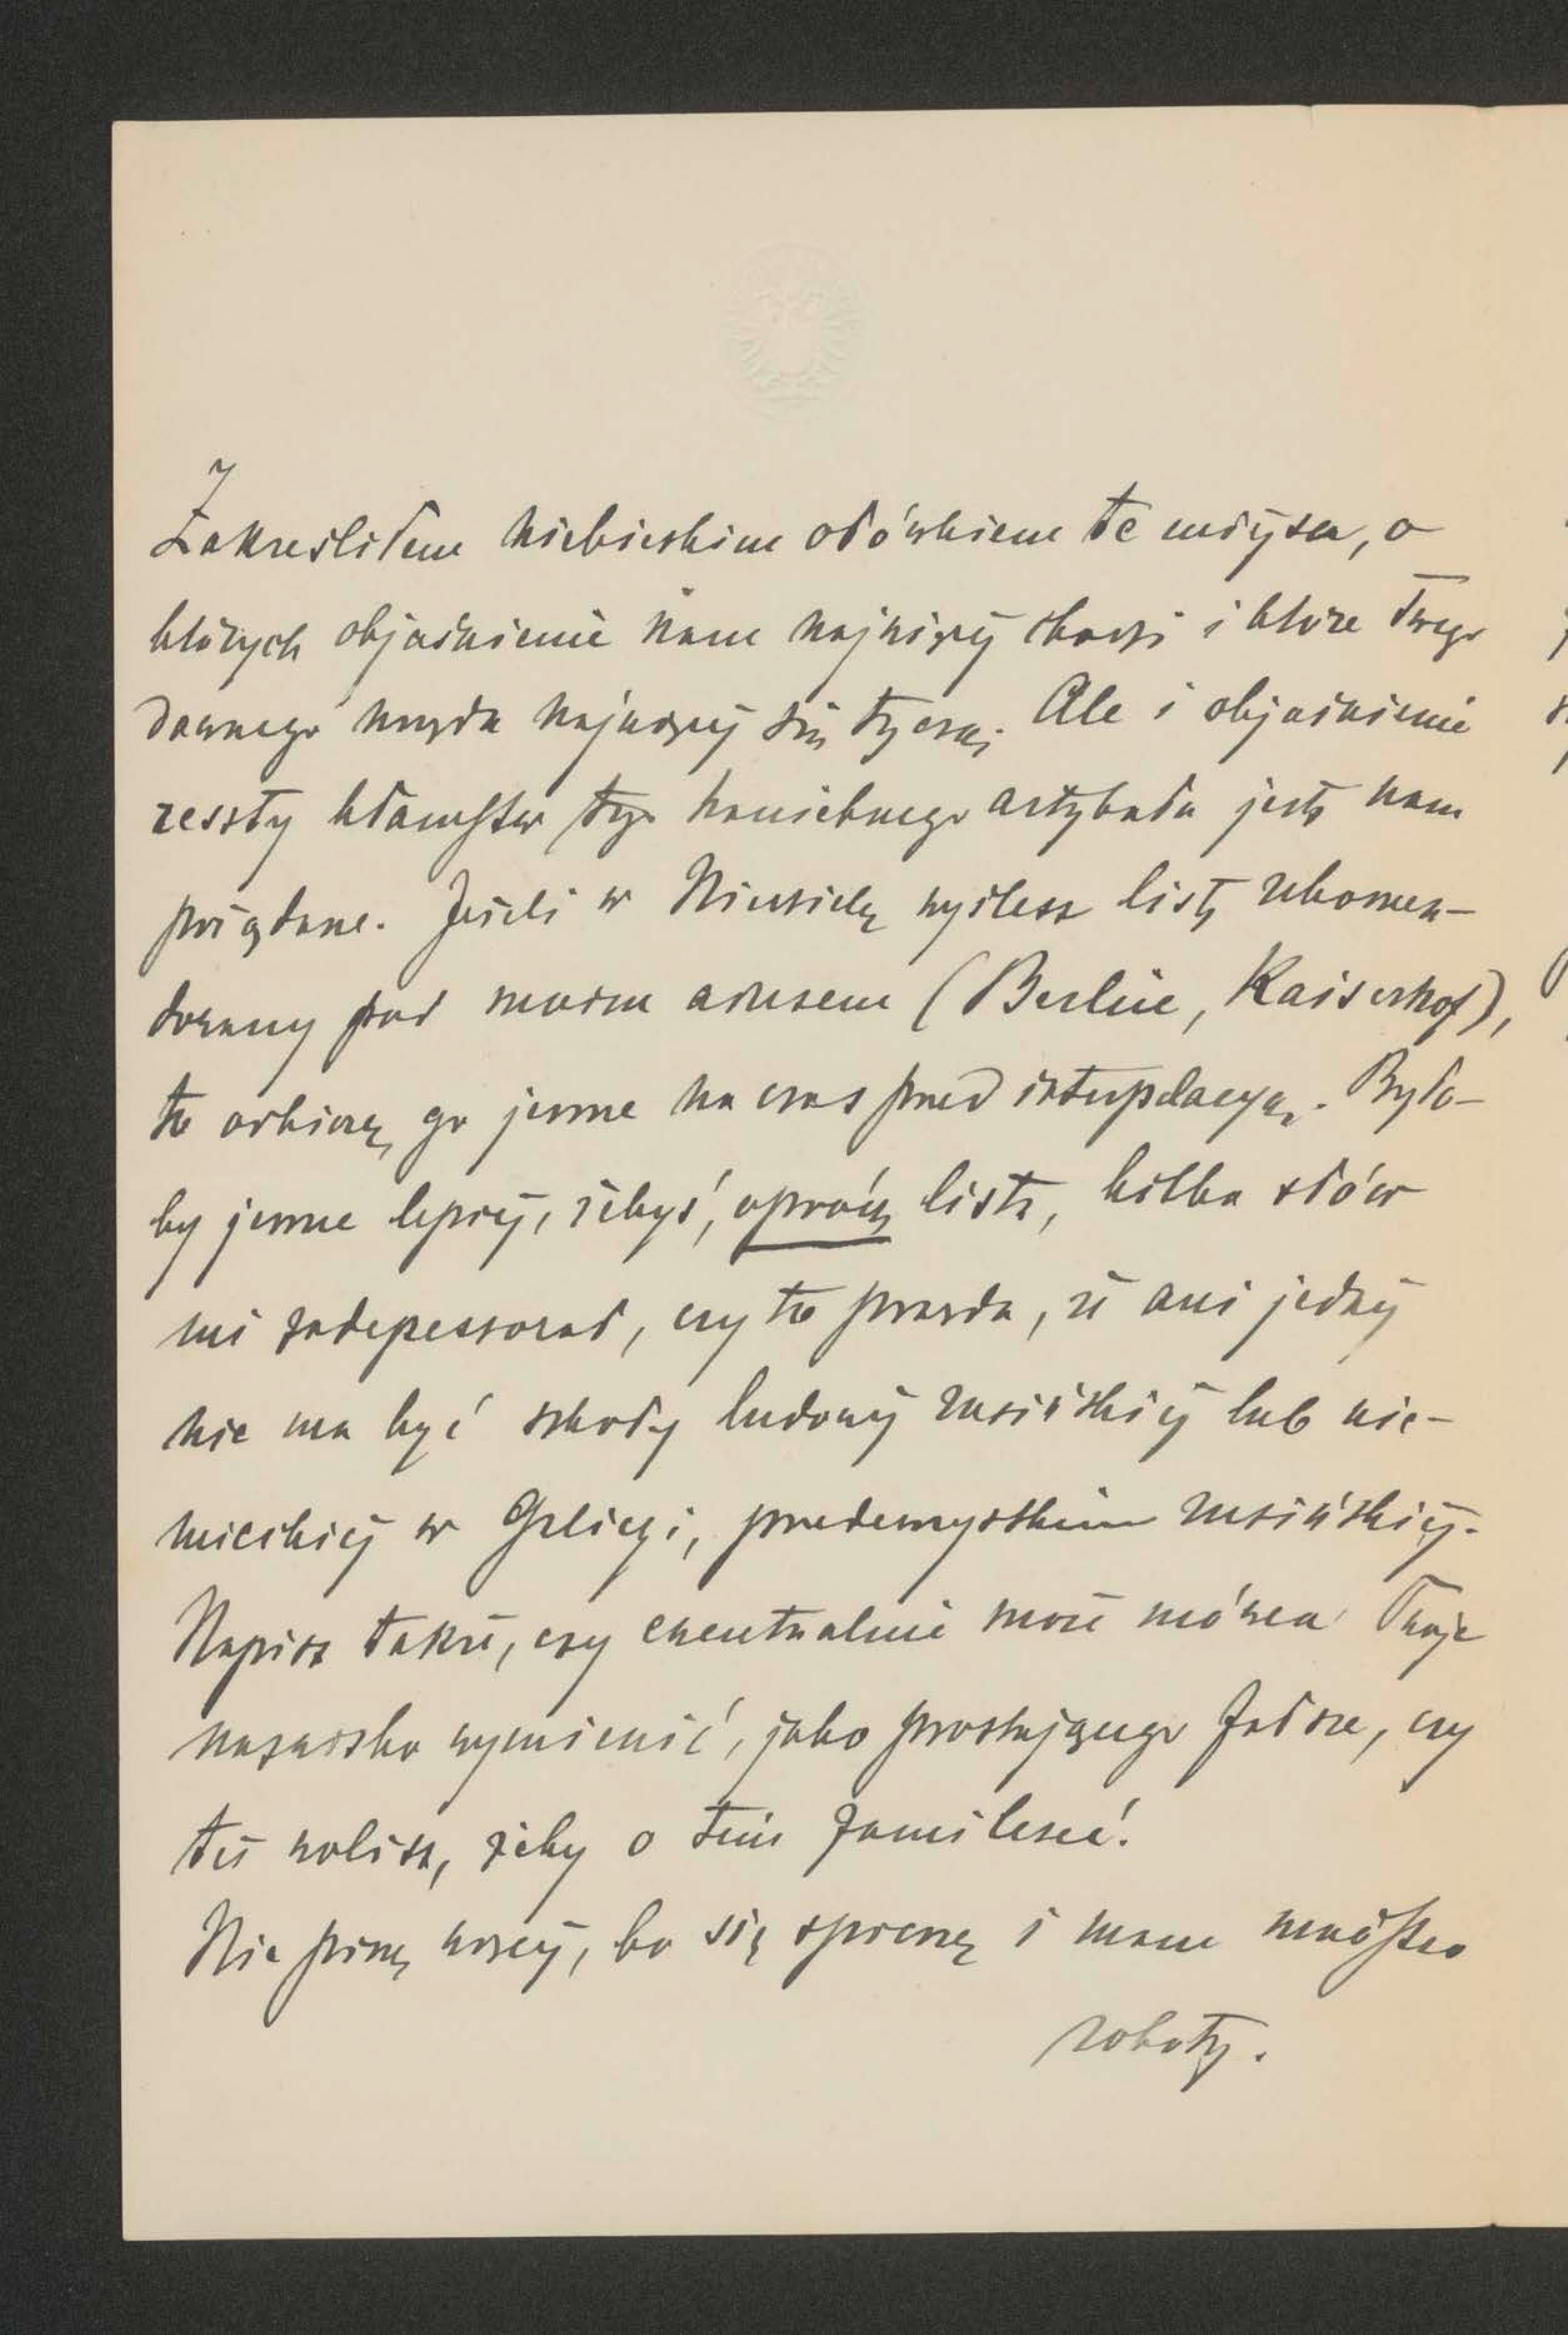 Zakreśliłem niebieskim ołówkiem te miejsca, o
których objaśnienie nam najwięcej chodzi i które Twego
dawnego urzędu najwięcej się tyczą. Ale i objaśnienie
reszty kłamstw tego haniebnego artykułu jest nam
pożądane. Jeżeli w Niedzielę wyślesz list rekomen-
dowany pod moim adresem (Berlin, Kaiserhof),
to odbiorę go jeszcze na czas przed interpelacyą. Było-
by jeszcze lepiej, żebyś, oprócz listu, kilka słów
mi zadepeszował, czy to prawda, że ani jednej
nie ma być szkoły ludowej rusińskiej lub nie-
mieckiej w Galicyi, przedewszystkiem rusińskiej.
Napisz także, czy ewentualnie może mówca Twoje
nazwisko wymienić, jako prostującego fałsze, czy
też wolisz, żeby o tem zamilczeć!
Nie piszę więcej, bo się spieszę i mam mnóstwo
roboty.